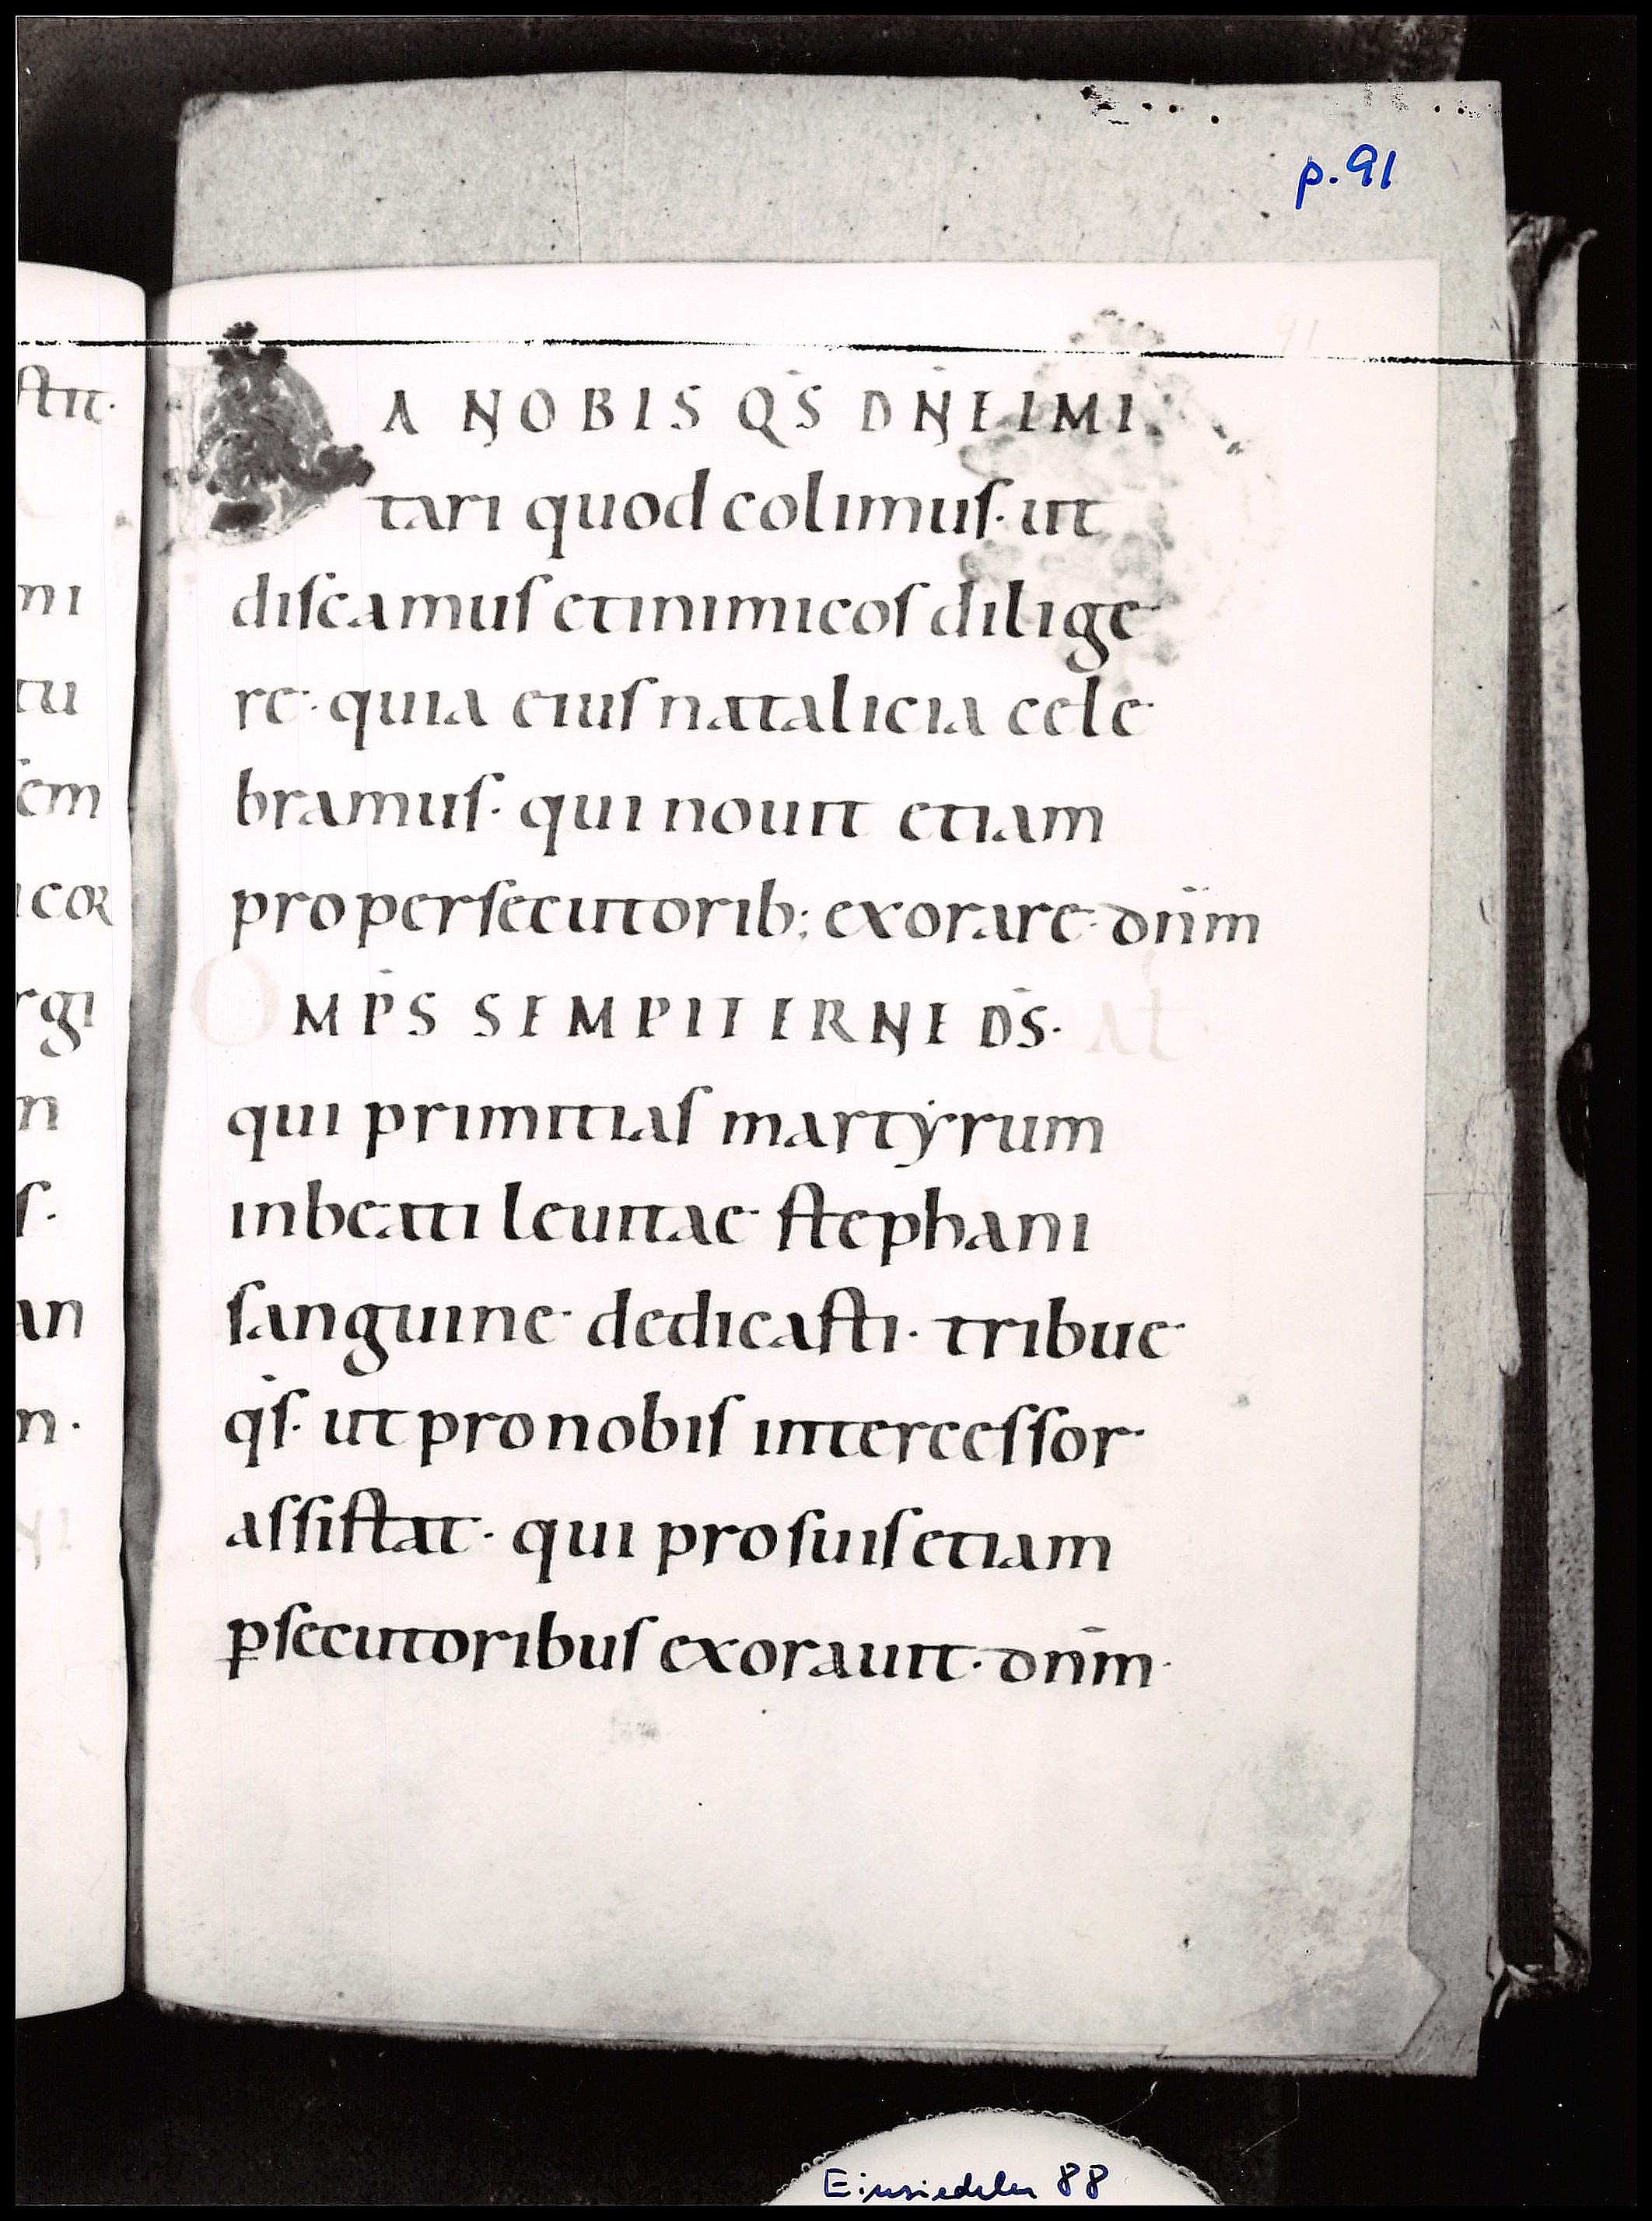 p. 91
DA NOBIS Q̄S DN̄E IMI
tari quod colimus· ut
discamus et inimicos dilige
re· quia eius natalicia cele
bramus· qui nouit etiam
pro persecutorib; exorare dn̄m
OMP̄S SEMPITERNE D̄S· At
qui primitias martẏrum
in beati leuitae stephani
sanguine dedicasti· tribue
q̄s· ut pro nobis intercessor
assistat· qui pro suis etiam
ꝑsecutoribus exorauit· dn̄m·
Einsiedeln 88